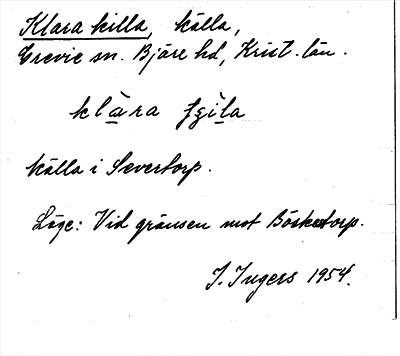 Klara killa, källa,
Grevie sn. Bjäre hd, Krist. län.
klàra ʃɡìla
källa i Severtorp.
Läge: Vid gränsen mot Böskestorp.
I. Ingers 1954.